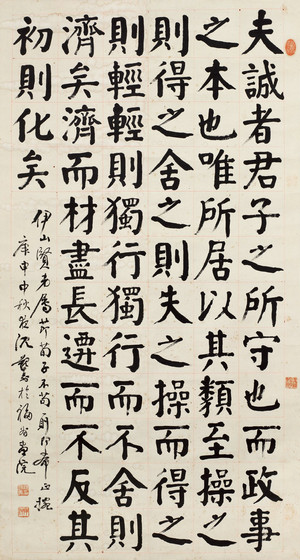 夫誠者君子之所守也而政事
之本也唯所居以其類至操之
則得之舍之則失之操而得之
則輕輕則獨行獨行而不舍則
濟矣濟而材盡長遷而不反其
初則化矣
伊山賢弟屬節荀子不苟則即希正腕
庚申中秋後沈覲壽於福州畫院